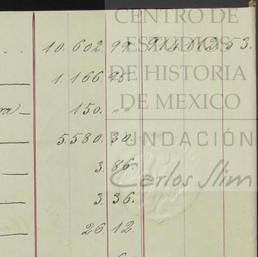 CENTRO DE
ESTUDIOS
DE HISTORIA
DE MEXICO
FUNDACIÓN
Carlos Slim
10.602.97.
1.166.
150.
5.580.30.
3.86.
3.36.
26 12.